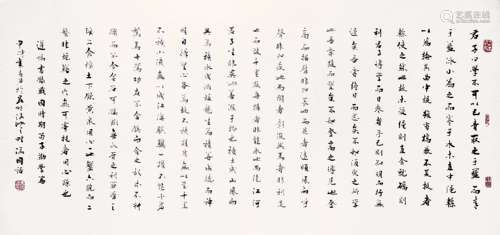 君子曰學不可以已青取之于藍而青
于藍冰水為之而寒于水木直中繩
以為輪其曲中規雖有槁暴不復挺者
輮使之然也故木受繩則直金就礪則
利君子博學而日參省乎己則知明而行無
過矣吾嘗終日而思矣不如須臾之所學
也吾嘗跂而望矣不如登高之博見也登
高而招臂非加長也而見者遠順風而呼
聲非加疾也而聞者彰假輿馬者非利足
也而致千里假舟楫者非能水也而絕江河
君子生非異也善假于物也積土成山風雨
興焉積水成淵蛟龍生焉積善成德而神
明自得聖心備焉故不積跬步無以至千里
不積小流無以成江海騏驥一躍不能十步
駑馬十駕功在不舍鍥而舍之朽木不折
鍥而不舍金石可鏤蚓無爪牙之利筋骨之
強上食埃土下飲黃泉用心一也蟹六跪而二
螯非蛇鱔之穴無可寄托者用心躁也